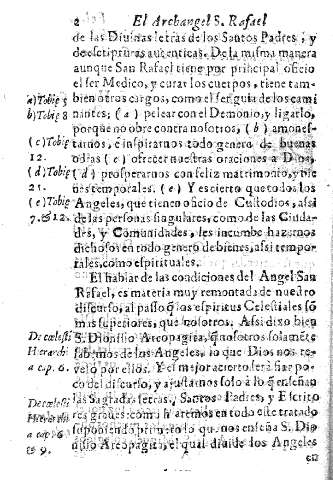 2 El Archangel S. Rafael
de las Diuinas letras de los Santos Padres, y
de escripturas autenticas. De la misma manera
aunque San Rafael tiene por principal oficio
el ser Medico, y curar los cuerpos, tiene tam-
bien otros cargos, como el ser guia de los cami
nantes; (a) pelear con el Demonio, y ligarlo,
porque no obre contra nosotros, (b) amones-
tarnos, è inspirarnos todo genero de buenas
obras (c) ofrecer nuestras oraciones a Dios,
(d) prosperarnos con feliz matrimonio, y bie
nes temporales. (e) Y es cierto que todos los
Angeles, que tienen oficio de Custodios, assi
de las personas singulares, como de las Ciuda-
des, y Comunidades, les incumbe hazernos
dichosos en todo genero de bienes, assi tempo-
rales, como espirituales.
El hablar de las condiciones del Angel San
Rafael, es materia muy remontada de nuestro
discurso, al passo q̃ los espiritus Celestiales sõ
mas superiores, que nosotros. Assi dixo bien
S. Dionisio Areopagita, q̃ nosotros solamẽte
sabemos de los Angeles, lo que Dios nos re-
velò por ellos. Y el mejor acierto serà fiar po-
co del discurso, y ajustarnos solo à lo q̃ enseñan
las Sagradas letras, Santos Padres, y Escrito
res graues: como haremos en todo este tratado
suponiendo primero lo que nos enseña S. Dio
nisio Areopagita, el qual diuide los Angeles
en
a) Tobiæ 5
b) Tobiæ 8
(c) Tobiæ
12.
(d) Tobiæ
(e) Tobiæ
7. & 12.
De cœlesti
Hierarchi
a cap. 6.
De cœlesti
Hierarchi
a cap. 6
& 9.